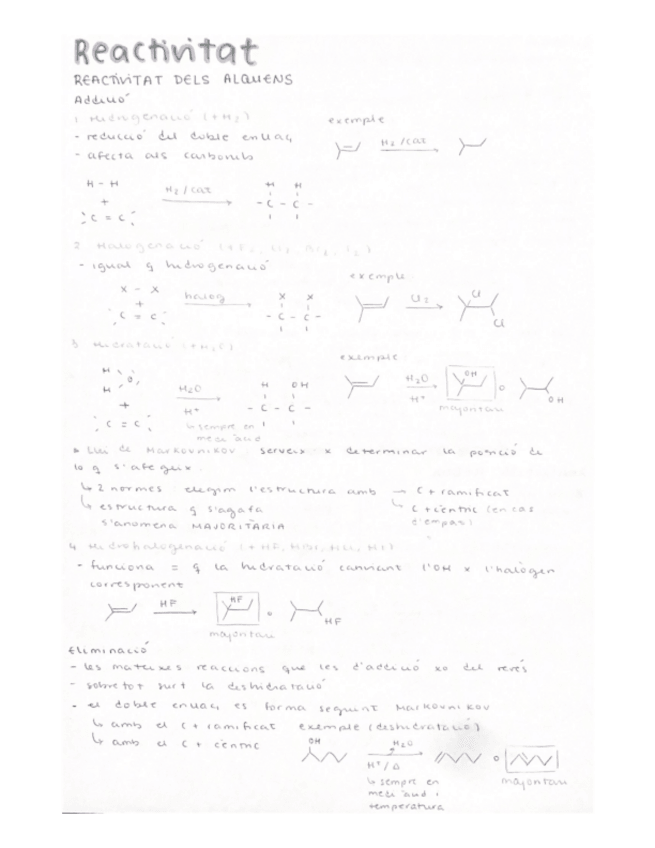 Reactivitat
REACTIVITAT DELS ALQUENS
Addició
1 Hidrogenació (+H2)
exemple
- reducció del doble enllaç
- afecta als carbonis
H2/cat
H - H
+
C = C
H2/cat
H H
- C - C -
2 Halogenació (+F2, Cl2, Br2, I2)
- igual q hidrogenació
exemple
X - X
+
C = C
halog
X X
- C - C -
Cl2
Cl
Cl
3 Hidratació (+H2O)
exemple
H
O
H
+
C = C
H2O
H+
↳ sempre en
medi àcid
H OH
- C - C -
H2O
H+
OH
o
OH
majoritari
* Llei de MARKOVNIKOV serveix x determinar la posició de
lo q s'afegeix.
↳ 2 normes: elegim l'estructura amb → C + ramificat
↳ C + cèntric (en cas
d'empat)
↳ estructura q s'agafa
s'anomena MAJORITÀRIA
4 Hidrohalogenació (+ HF, HBr, HCl, HI)
- funciona = q la hidratació canviant l'OH x l'halògen
corresponent
HF
HF
o
HF
majoritari
Eliminació
- les mateixes reaccions que les d'addició xo del revés
- sobretot surt la deshidratació
- el doble enllaç es forma seguint MARKOVNIKOV
↳ amb el C + ramificat
exemple (deshidratació)
↳ amb el C + cèntric
OH
H2O
H+/Δ
o
majoritari
↳ sempre en
medi àcid i
temperatura